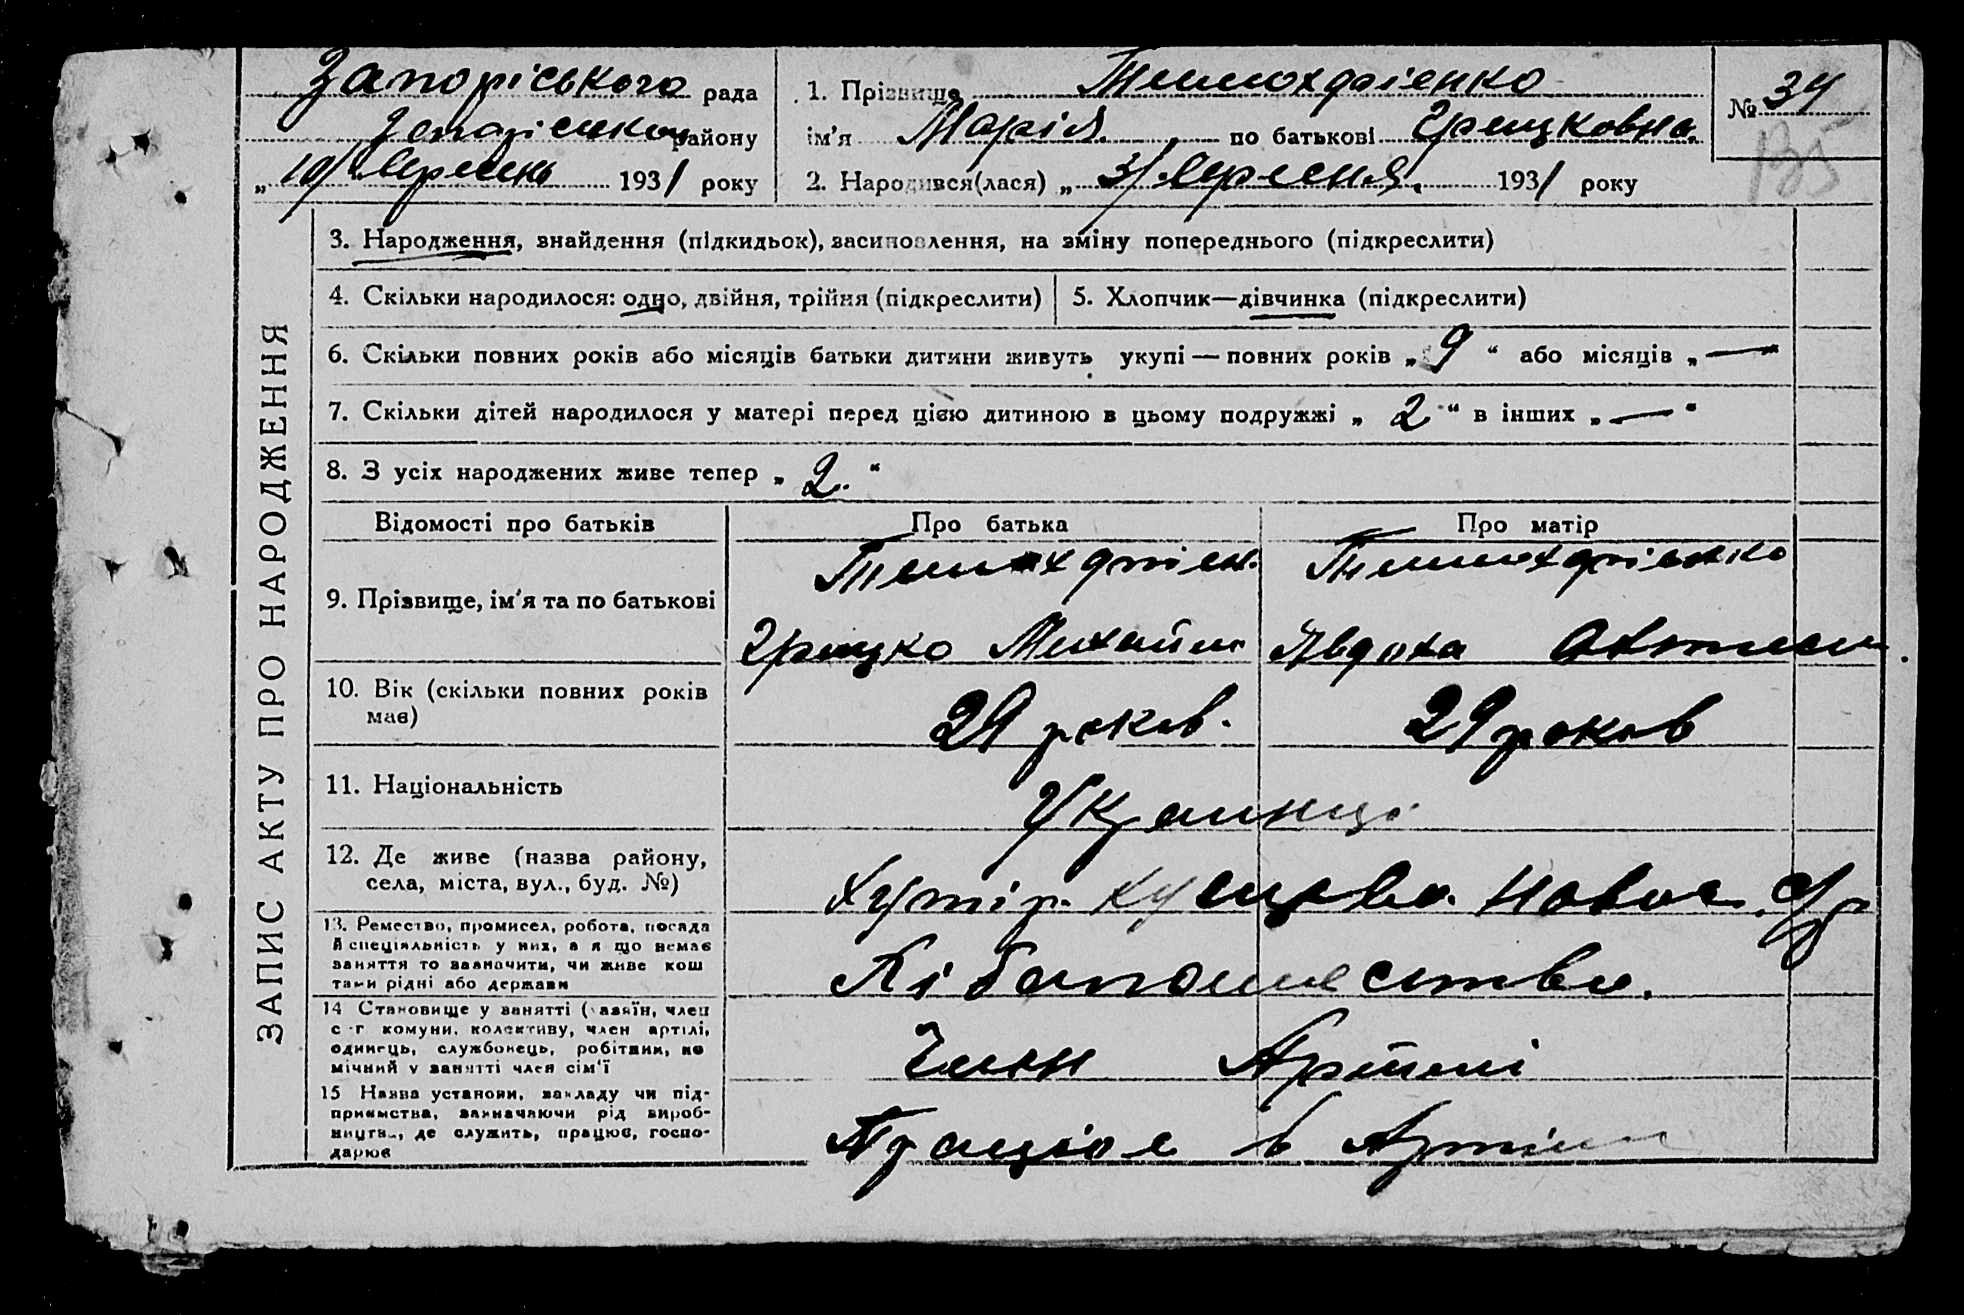 Запоріського рада
Запоріського району
„ 10/ Вересень 1931 року
1. Прізвище Тимохфтіенко
ім'я Марія по батькові Грицковна.
2. Народився(лася) „ 3/ Вересня. 1931 року
№ 34
135
ЗАПИС АКТУ ПРО НАРОДЖЕННЯ
3. Народження, знайдення (підкидьок), засиновлення, на зміну попереднього (підкреслити)
4. Скільки народилося: одно, двійня, трійня (підкреслити)
5. Хлопчик—дівчинка (підкреслити)
6. Скільки повних років або місяців батьки дитини живуть укупі — повних років „ 9 “ або місяців „ — “
7. Скільки дітей народилося у матері перед цією дитиною в цьому подружжі „ 2 “ в інших „ — “
8. З усіх народжених живе тепер „ 2. “
Відомості про батьків
Про батька
Про матір
9. Прізвище, ім'я та по батькові
Грицко Михайло
Явдоха
10. Вік (скільки повних років має)
29 років.
29 років
11. Національність
Украинці
12. Де живе (назва району,
села, міста, вул., буд. №)
Хутір.
13. Ремество, промисел, робота, посада
й спеціяльність у них, а я що немає
заняття то зазначити, чи живе кош
тами рідні або держави
Хібапошество.
14 Становище у занятті (хазяїн, член
с-г комуни, колективу, член артілі,
одинець, службовець, робітник, по
мічний у занятті член сім'ї
Член Артілі
15 Назва установи, закладу чи під-
приємства, зазначаючи рід вироб-
ництва, де служить, працює, госпо-
дарює
Праціює в Артілі